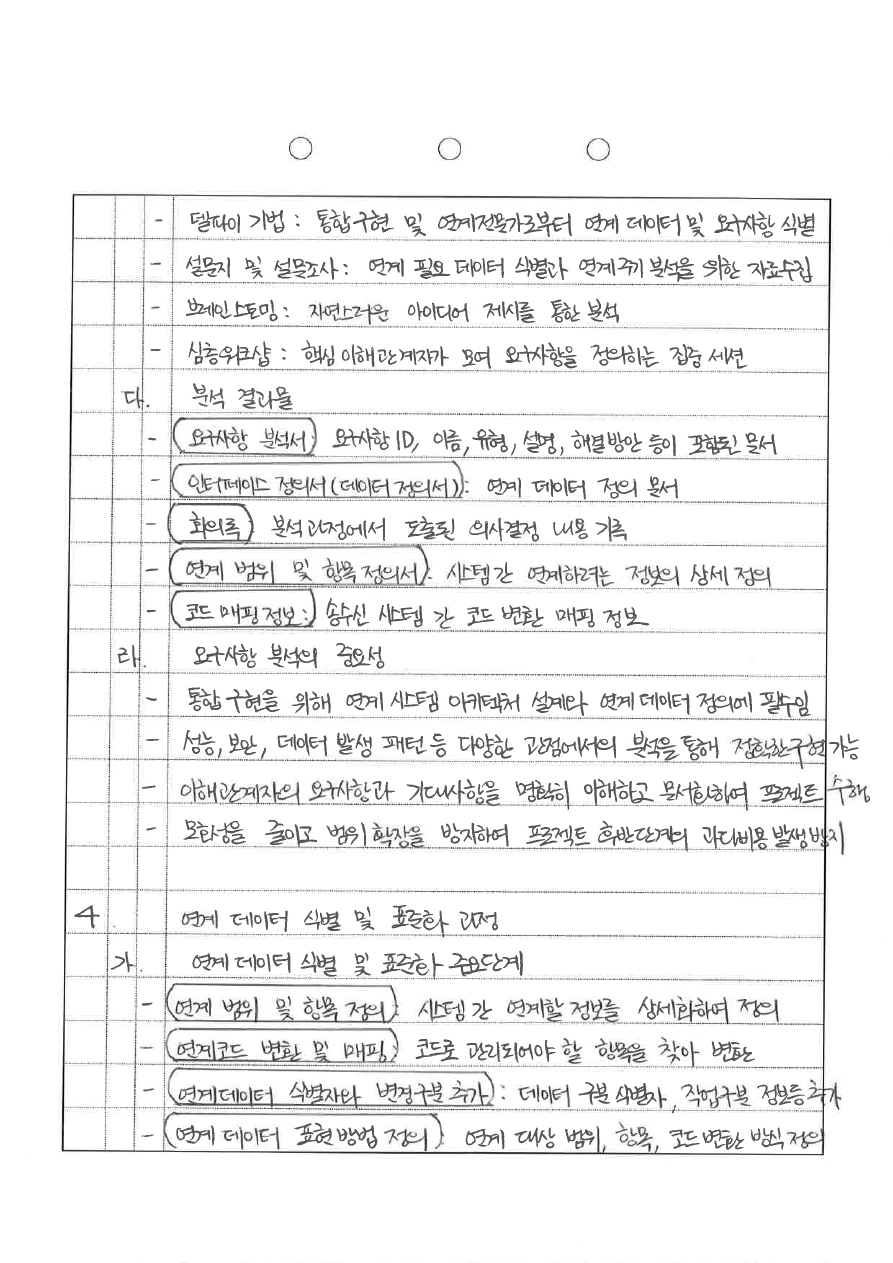 - 델파이 기법 : 통합구현 및 연계전문가로부터 연계 데이터 및 요구사항 식별
- 설문지 및 설문조사 : 연계 필요 데이터 식별과 연계주기 분석을 위한 자료수집
- 브레인스토밍 : 자연스러운 아이디어 제시를 통한 분석
- 심층워크샵 : 핵심 이해관계자가 모여 요구사항을 정의하는 집중 세션
다. 분석 결과물
- 요구사항 분석서 : 요구사항 ID, 이름, 유형, 설명, 해결방안 등이 포함된 문서
- 인터페이스 정의서(데이터 정의서) : 연계 데이터 정의 문서
- 회의록 : 분석과정에서 도출된 의사결정 내용 기록
- 연계 범위 및 항목 정의서 : 시스템 간 연계하려는 정보의 상세 정의
- 코드 매핑 정보 : 송수신 시스템 간 코드 변환 매핑 정보
라. 요구사항 분석의 중요성
- 통합 구현을 위해 연계 시스템 아키텍처 설계와 연계 데이터 정의에 필수임
- 성능, 보안, 데이터 발생 패턴 등 다양한 관점에서의 분석을 통해 정확한 구현 가능
- 이해관계자의 요구사항과 기대사항을 명확히 이해하고 문서화하여 프로젝트 수행
- 모호성을 줄이고 범위 확장을 방지하여 프로젝트 후반단계의 과다비용 발생 방지
4. 연계 데이터 식별 및 표준화 과정
가. 연계 데이터 식별 및 표준화 주요단계
- 연계 범위 및 항목 정의 : 시스템 간 연계할 정보를 상세화하여 정의
- 연계코드 변환 및 매핑 : 코드로 관리되어야 할 항목을 찾아 변환
- 연계데이터 식별자와 변경구분 추가 : 데이터 구분 식별자, 작업구분 정보등 추가
- 연계 데이터 표현 방법 정의 : 연계 대상 범위, 항목, 코드 변환 방식 정의